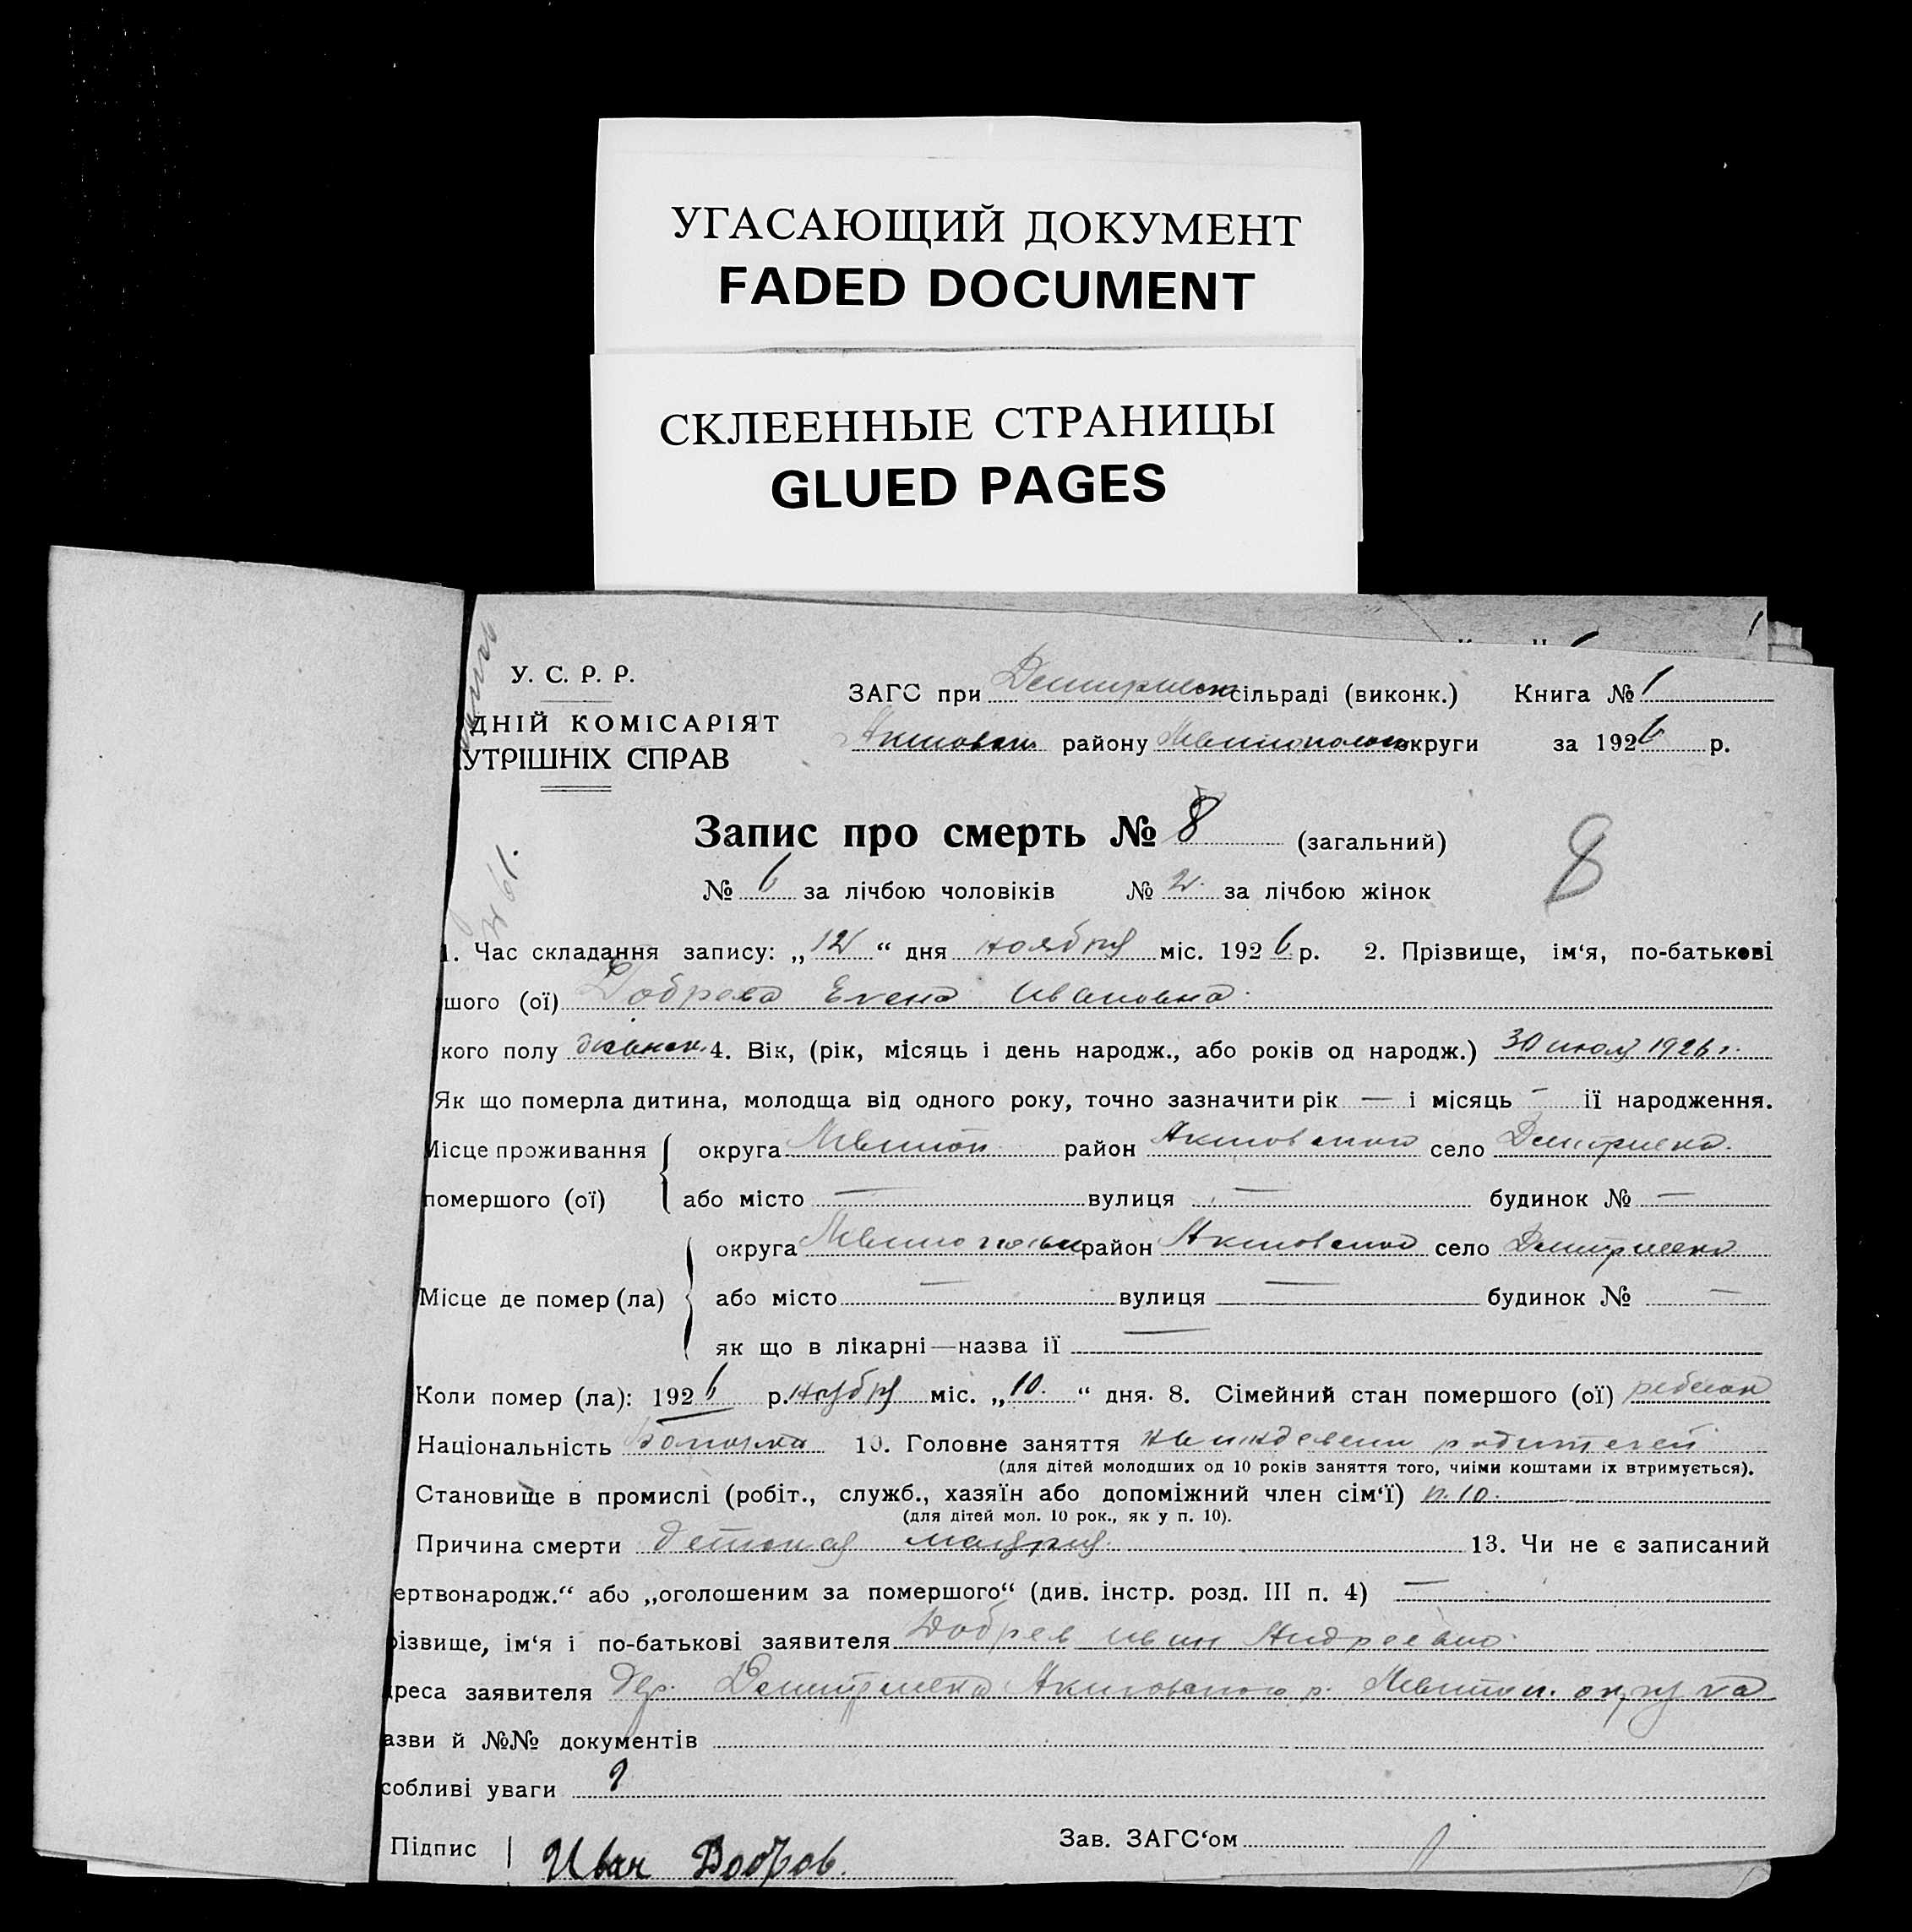 УГАСАЮЩИЙ ДОКУМЕНТ
FADED DOCUMENT
СКЛЕЕННЫЕ СТРАНИЦЫ
GLUED PAGES
У. С. Р. Р.
ДНІЙ КОМІСАРІЯТ
УТРІШНІХ СПРАВ
ЗАГС при сільраді (виконк.) Книга № 1
району округи за 1926 р.
Запис про смерть № 8 (загальний)
8
№ 6 за лічбою чоловіків № 2 за лічбою жінок
1. Час складання запису: „12“ дня ноября міс. 1926 р. 2. Прізвище, ім‘я, по-батькові
шого (ої) Добрева Елена Ивановна
кого полу 4. Вік, (рік, місяць і день народж., або років од народж.) 30 июля 1926 г.
Як що померла дитина, молодща від одного року, точно зазначити рік — і місяць — ії народження.
Місце проживання округа район Актовский село
помершого (ої) або місто — вулиця — будинок № —
округа район Актовский село
Місце де помер (ла) або місто — вулиця — будинок № —
як що в лікарні—назва ії —
Коли помер (ла): 1926 р. ноября міс. „10.“ дня. 8. Сімейний стан помершого (ої)
Національність 10. Головне заняття на иждевени родителей
(для дітей молодших од 10 років заняття того, чиїми коштами іх втримується).
Становище в промислі (робіт., служб., хазяїн або допоміжний член сім‘ї) п. 10.
(для дітей мол. 10 рок., як у п. 10).
Причина смерти детская 13. Чи не є записаний
ертвонародж.“ або „оголошеним за помершого“ (див. інстр. розд. III п. 4) —
різвище, ім‘я і по-батькові заявителя Добрев Иван
дреса заявителя дер. р. округа
азви й №№ документів
собливі уваги
Підпис Иван Зав. ЗАГС‘ом